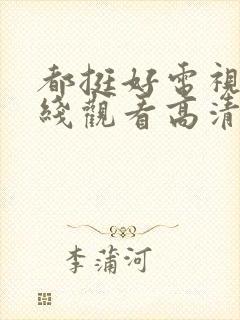 都挺好電視
綫觀看高清
李蒲河